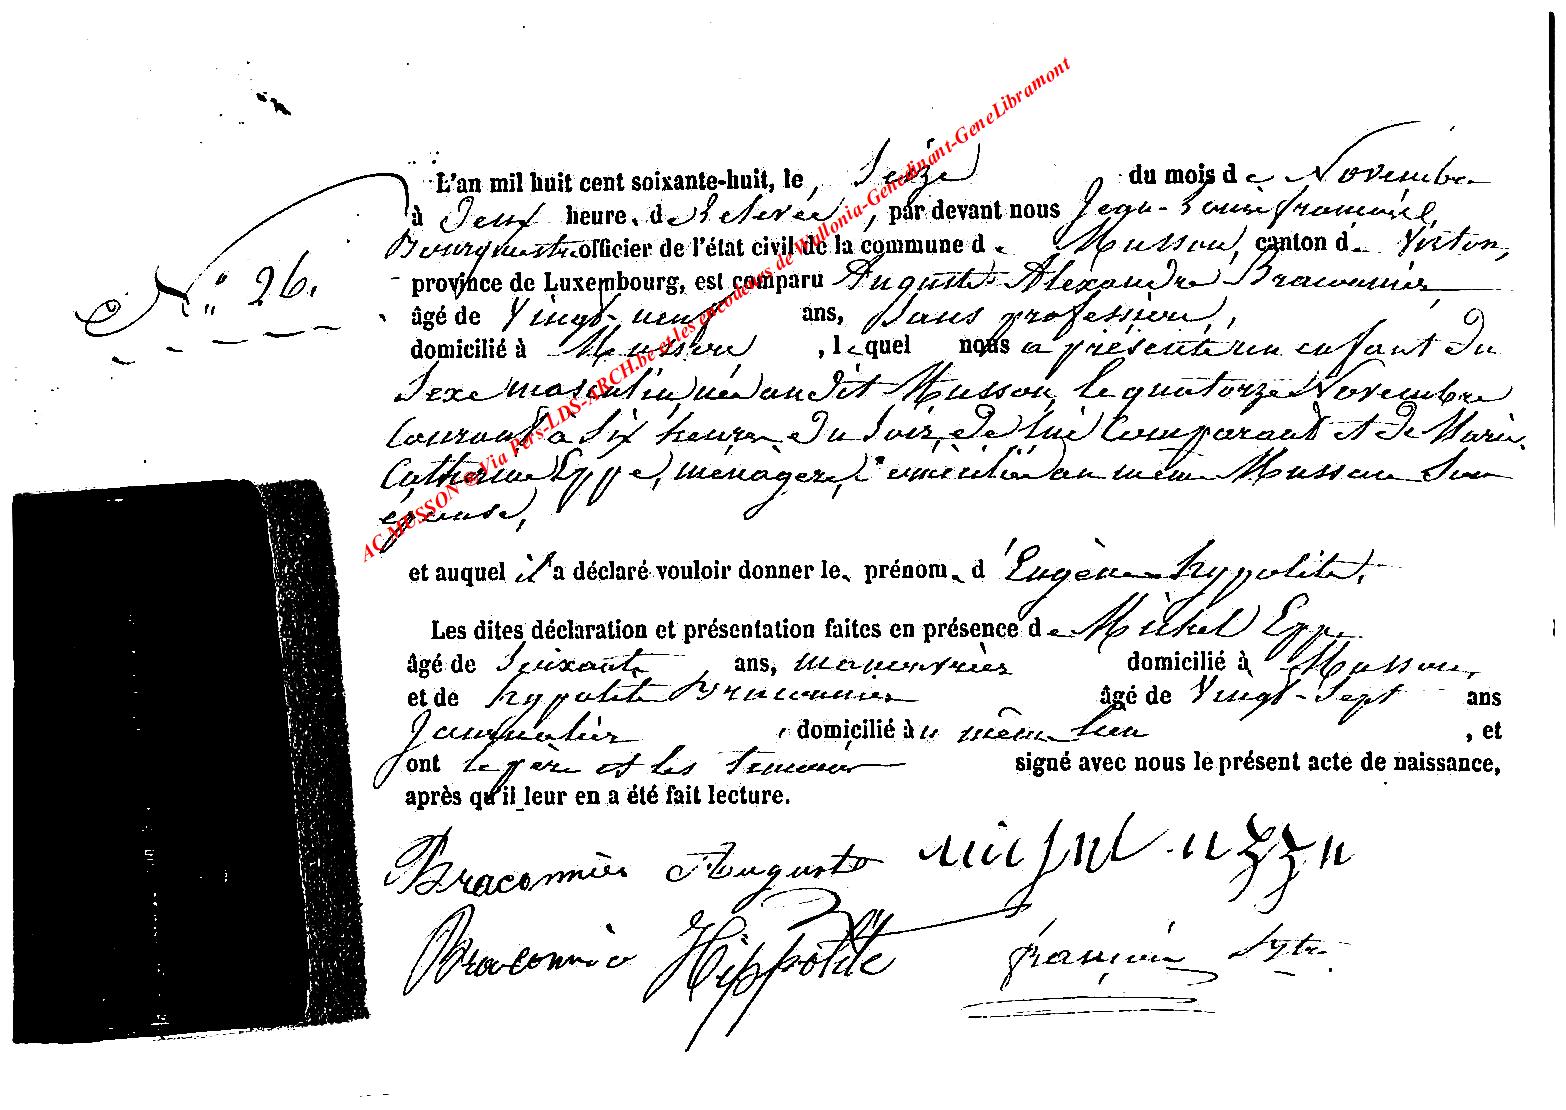 N° 26.
L'an mil huit cent soixante-huit, le Seize du mois de Novembre
à Deux heure, de relevée, par devant nous Jean-Louis
officier de l'état civil de la commune de Musson, canton de Virton,
province de Luxembourg, est comparu Auguste Alexandre Braconnier,
âgé de Vingt-neuf ans, Sans profession,
domicilié à Musson, lequel nous a présenté un enfant du
Sexe masculin, né au dit Musson, le quatorze Novembre
Courant à Six heures du Soir, de lui Comparant et de Marie
Catherine Eppe, ménagère, domiciliée au même Musson Son
épouse,
et auquel il a déclaré vouloir donner le, prénom, d'Eugène hypolite,
Les dites déclaration et présentation faites en présence de Michel Eppe
âgé de Soixante ans, manouvrier domicilié à Musson,
et de hypolite Braconnier âgé de Vingt-Sept ans
Journalier, domicilié au même lieu, et
ont le père et les témoins signé avec nous le présent acte de naissance,
après qu'il leur en a été fait lecture.
Braconnier Auguste michel eppe
Braconnier Hippolite
AC MUSSON @ Via Pers-LDS-ARCH.be et les encodeurs de Wallonia-Genedinant-GeneLibramont